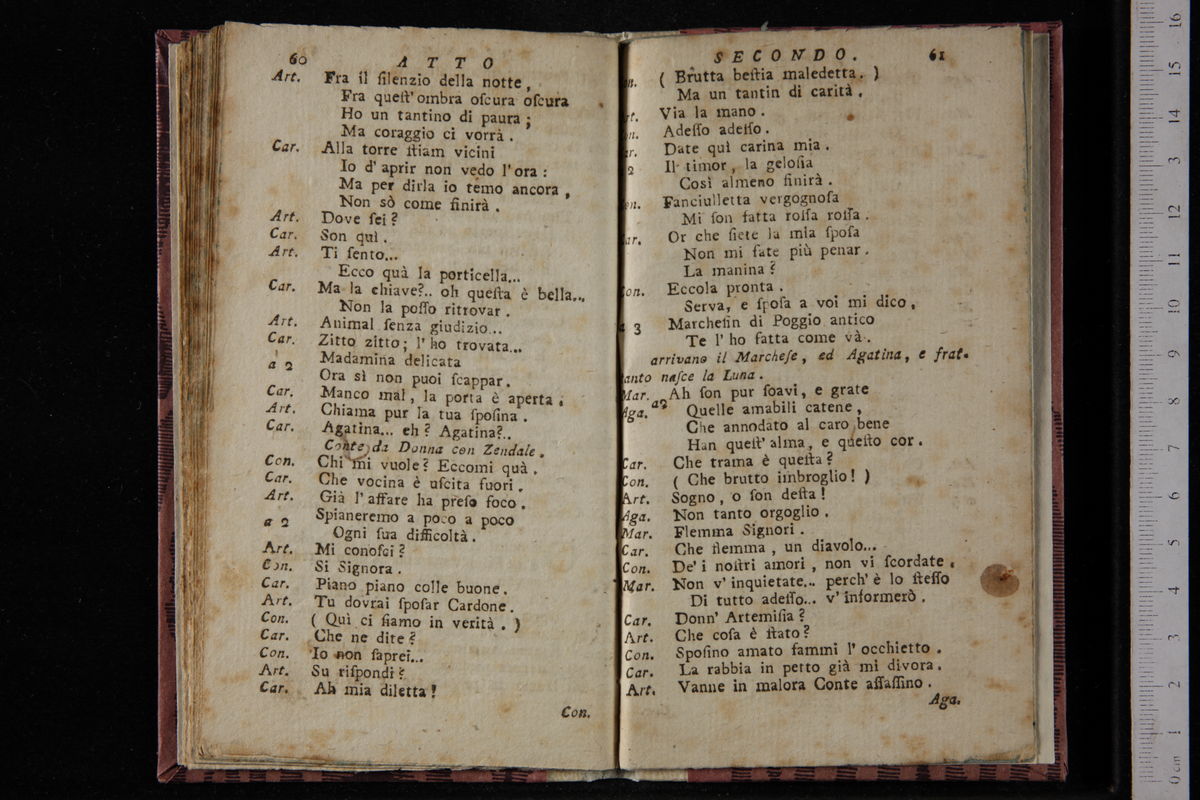 60 ATTO
Art. Fra il ſilenzio della notte,
Fra queſt' ombra oſcura oſcura
Ho un tantino di paura;
Ma coraggio ci vorrà.
Car. Alla torre ſtiam vicini
Io d' aprir non vedo l' ora:
Ma per dirla io temo ancora,
Non sò come finirà.
Art. Dove ſei?
Car. Son quì.
Art. Ti ſento...
Ecco quà la porticella...
Car. Ma la chiave?.. oh queſta è bella...
Non la poſſo ritrovar.
Art. Animal ſenza giudizio...
Car. Zitto zitto; l' ho trovata...
a 2 Madamina delicata
Ora sì non puoi ſcappar.
Car. Manco mal, la porta è aperta;
Art. Chiama pur la tua ſpoſina.
Car. Agatina... eh? Agatina?..
Conte da Donna con Zendale.
Con. Chi mi vuole? Eccomi quà.
Car. Che vocina è uſcita fuori.
Art. Già l' affare ha preſo foco.
a 2 Spianeremo a poco a poco
Ogni ſua difficoltà.
Art. Mi conoſci?
Con. Si Signora.
Car. Piano piano colle buone.
Art. Tu dovrai ſpoſar Cardone.
Con. (Quì ci ſiamo in verità.)
Car. Che ne dite?
Con. Io non ſaprei...
Art. Su riſpondi?
Car. Ah mia diletta!
Con.
SECONDO. 61
on. (Brutta beſtia maledetta.)
Ma un tantin di carità.
rt. Via la mano.
on. Adeſſo adeſſo.
ar. Date quì carina mia.
2 Il timor, la geloſia
Così almeno finirà.
on. Fanciulletta vergognoſa
Mi ſon fatta roſſa roſſa.
ar. Or che ſiete la mia ſpoſa
Non mi fate più penar.
La manina?
Con. Eccola pronta.
Serva, e ſpoſa a voi mi dico,
a 3 Marcheſin di Poggio antico
Te l' ho fatta come và.
arrivano il Marcheſe, ed Agatina, e frat-
tanto naſce la Luna.
Mar. Ah ſon pur ſoavi, e grate
Aga. a2 Quelle amabili catene,
Che annodato al caro bene
Han queſt' alma, e queſto cor.
Car. Che trama è queſta?
Con. (Che brutto imbroglio!)
Art. Sogno, o ſon deſta!
Aga. Non tanto orgoglio.
Mar. Flemma Signori.
Car. Che flemma, un diavolo...
Con. De' i noſtri amori, non vi ſcordate.
Mar. Non v' inquietate... perch' è lo ſteſſo
Di tutto adeſſo... v' informerò.
Car. Donn' Artemiſia?
Art. Che coſa è ſtato?
Con. Spoſino amato fammi l' occhietto.
Car. La rabbia in petto già mi divora.
Art. Vanne in malora Conte aſſaſſino.
Aga.